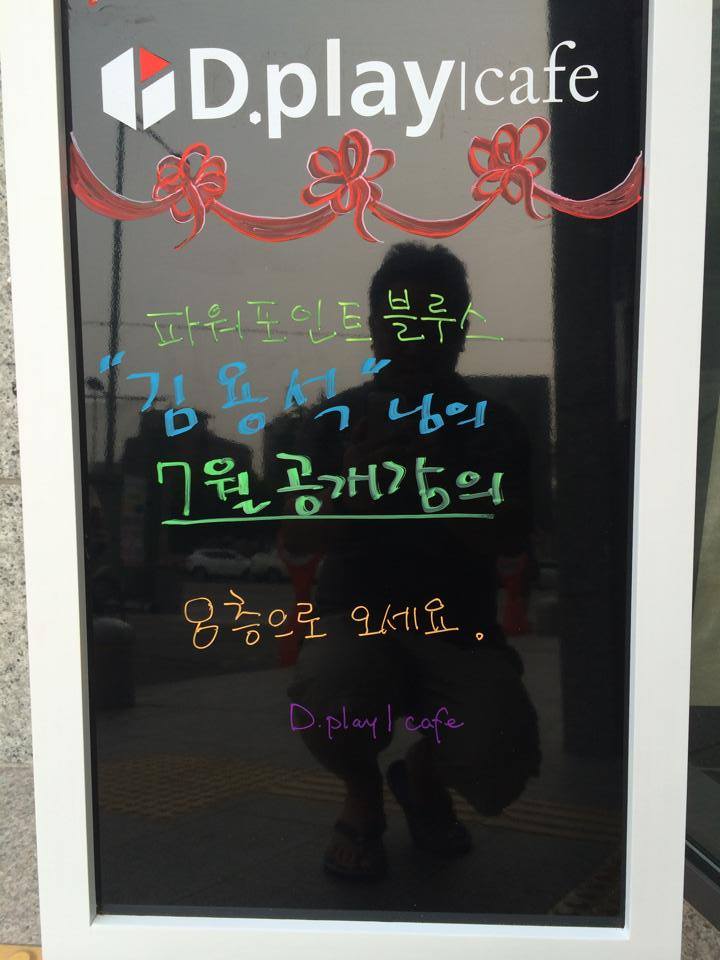 D.play|cafe
파워포인트 블루스
"김용석" 님의
7월 공개강의
8층으로 오세요.
D.play| cafe